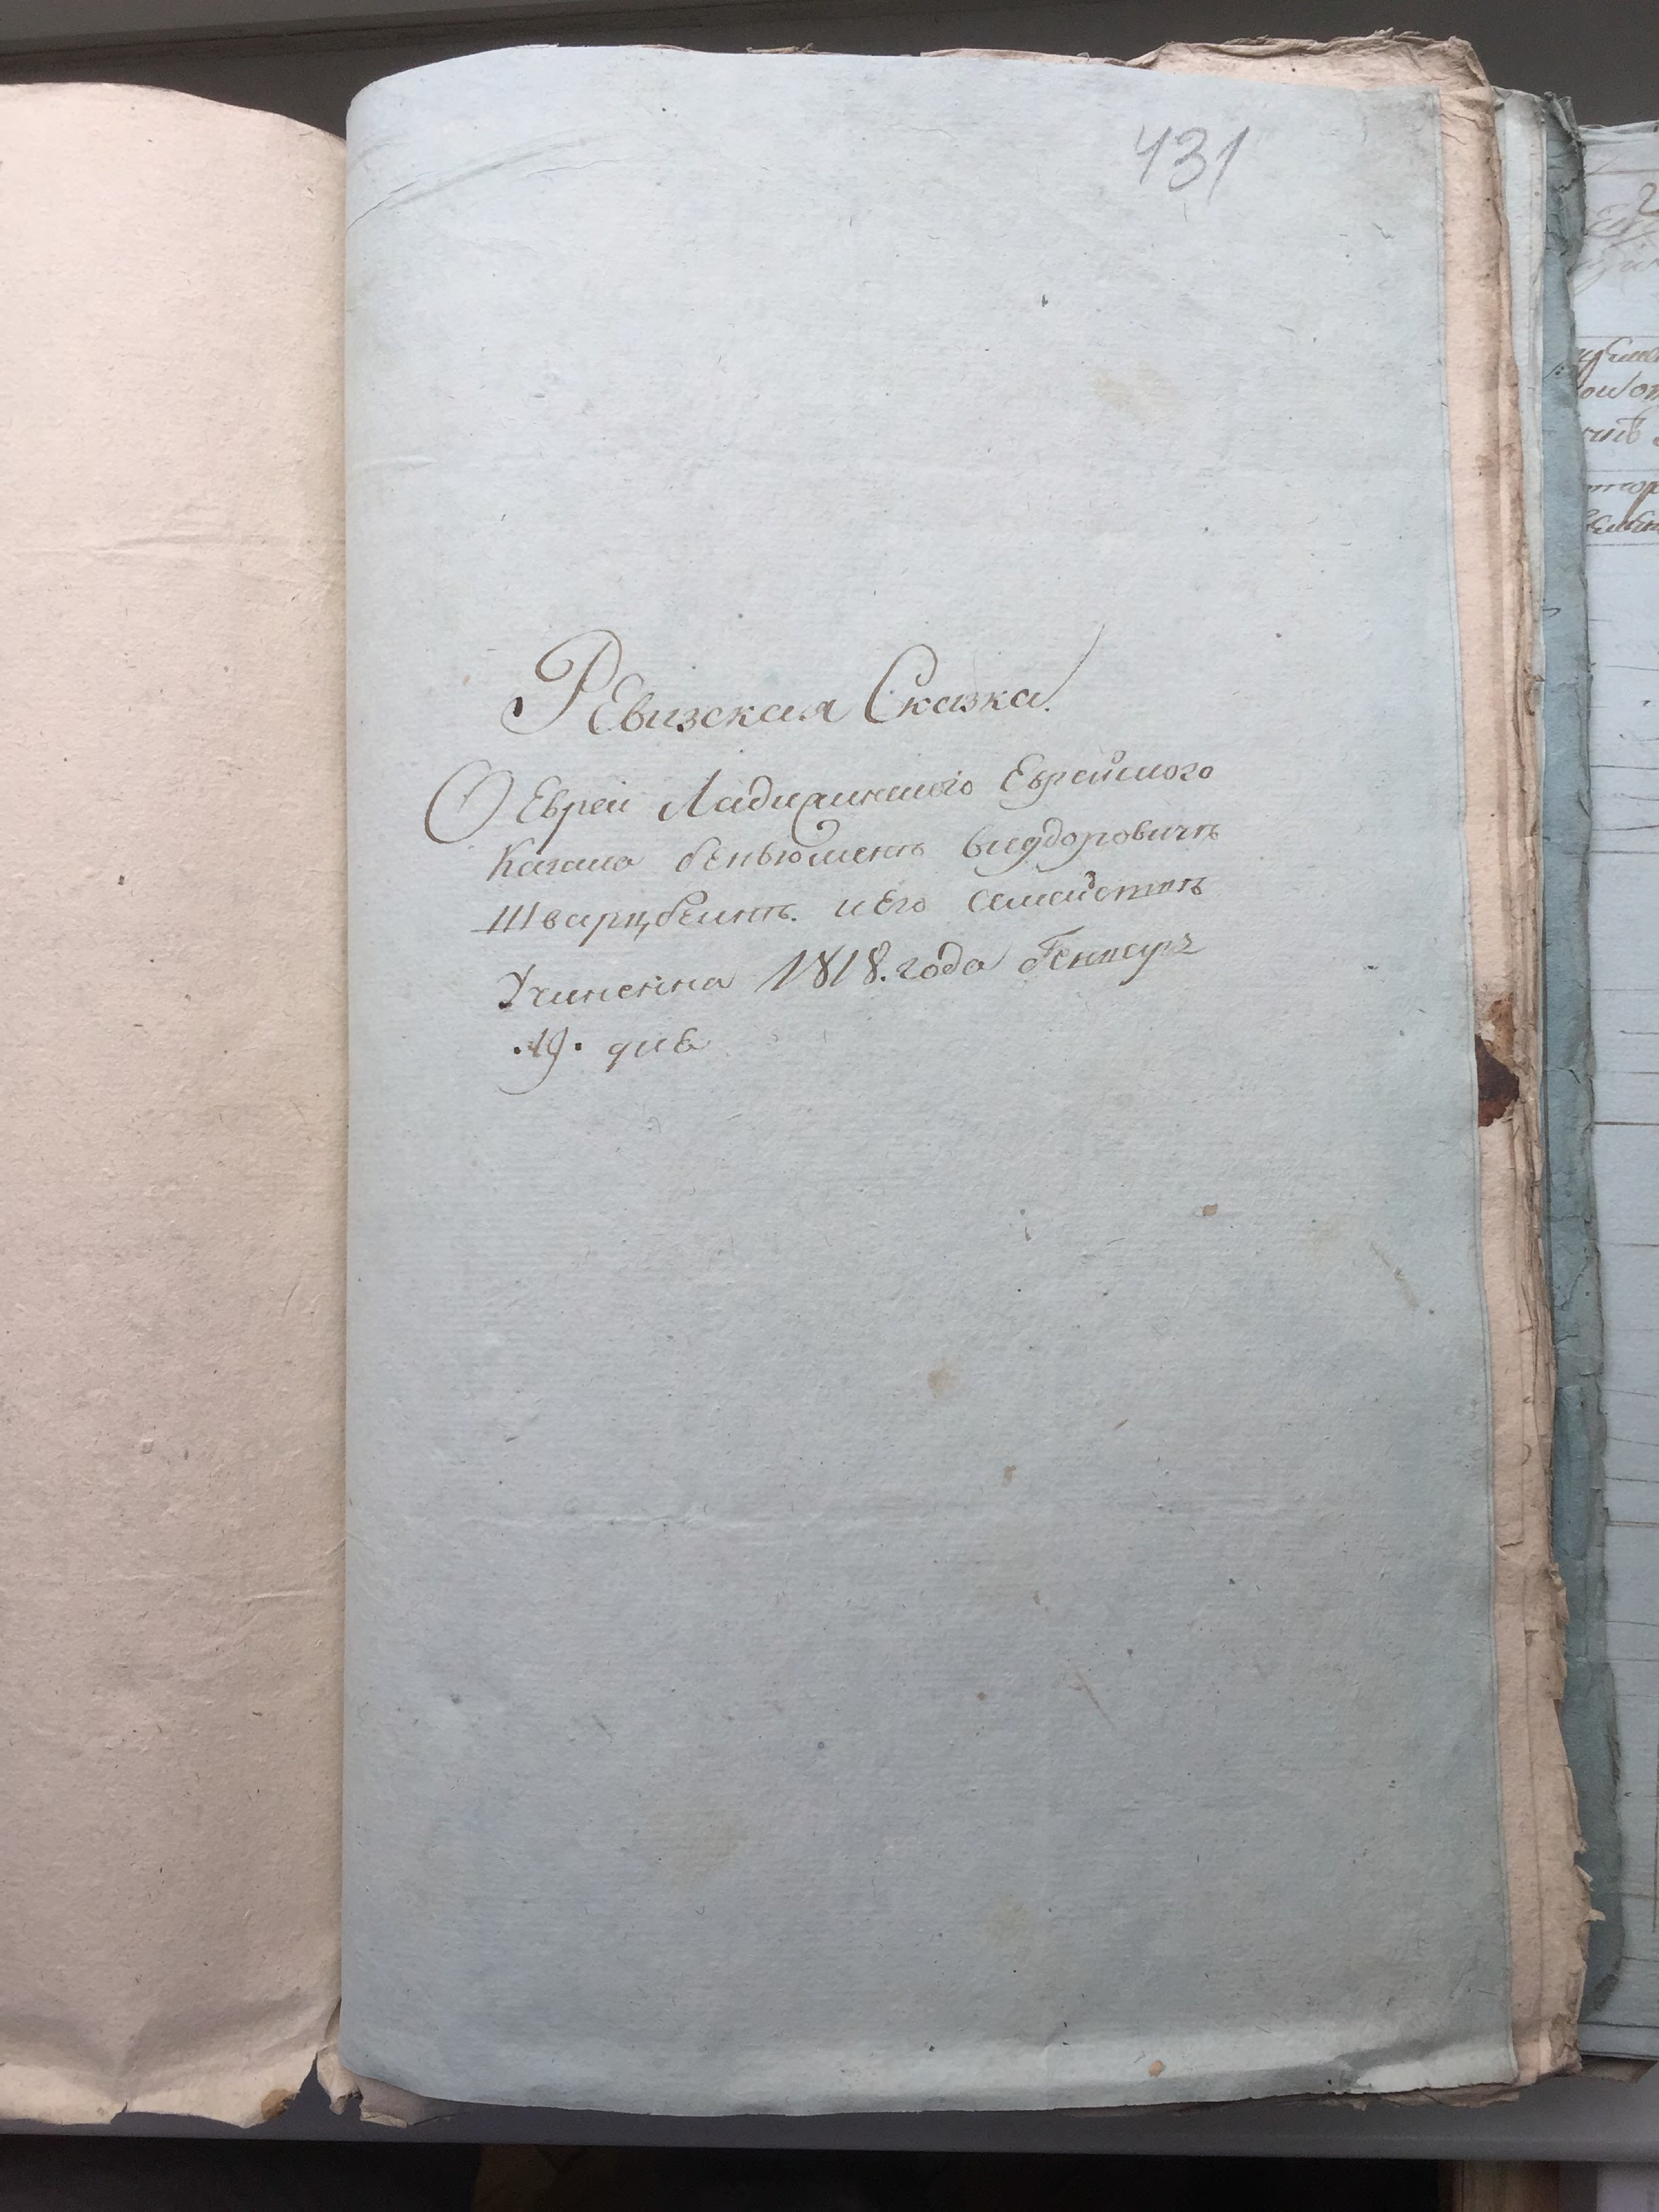 431
РЕвизская Сказка.
О Еврей Ладижинского Еврейского
Кагала беньюменъ
Шварцбеинъ. иЕго
Учиненна 1818. года Генваръ
.19. дна